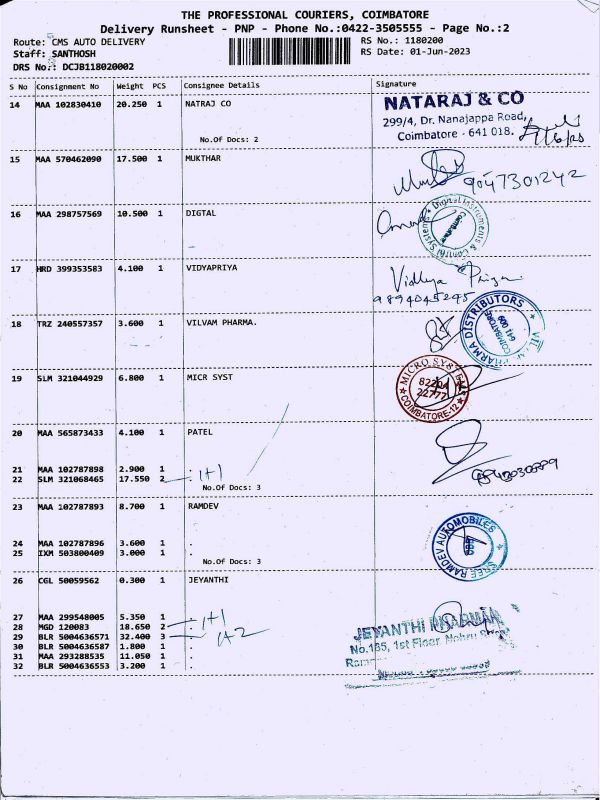 THE PROFESSIONAL COURIERS, COIMBATORE
Delivery Runsheet - PNP - Phone No.:0422-3505555 - Page No.:2
Route: CMS AUTO DELIVERY
RS No.: 1180200
Staff: SANTHOSH
RS Date: 01-Jun-2023
DRS No.: DCJB118020002
S No Consignment No Weight PCS Consignee Details Signature
14 MAA 102830410 20.250 1 NATRAJ CO
NATARAJ & CO
299/4, Dr. Nanajappa Road,
Coimbatore - 641 018.
No.Of Docs: 2
15 MAA 570462090 17.500 1 MUKTHAR
9047301242
16 MAA 298757569 10.500 1 DIGTAL
Digital Instruments & Control Systems
Coimbatore
17 HRD 399353583 4.100 1 VIDYAPRIYA
Vidhya Priya
9894045245
18 TRZ 240557357 3.600 1 VILVAM PHARMA.
PHARMA DISTRIBUTORS
COIMBATORE
641 009
19 SLM 321044929 6.800 1 MICR SYST
MICRO SYSTEMS
COIMBATORE-12
20 MAA 565873433 4.100 1 PATEL
21 MAA 102787898 2.900 1 .
22 SLM 321068465 17.550 2 : 1+1
No.Of Docs: 3
23 MAA 102787893 8.700 1 RAMDEV
SHREE RAMDEV AUTOMOBILES
24 MAA 102787896 3.600 1 .
25 IXM 503800409 3.000 1 .
No.Of Docs: 3
26 CGL 50059562 0.300 1 JEYANTHI
27 MAA 299548005 5.350 1 .
28 MGD 120083 18.650 2 : 1+1
29 BLR 5004636571 32.400 3 : 1+2
30 BLR 5004636587 1.800 1 .
31 MAA 293288535 11.050 1 .
32 BLR 5004636553 3.200 1 .
JEYANTHI
No.185, 1st Floor, Nehru